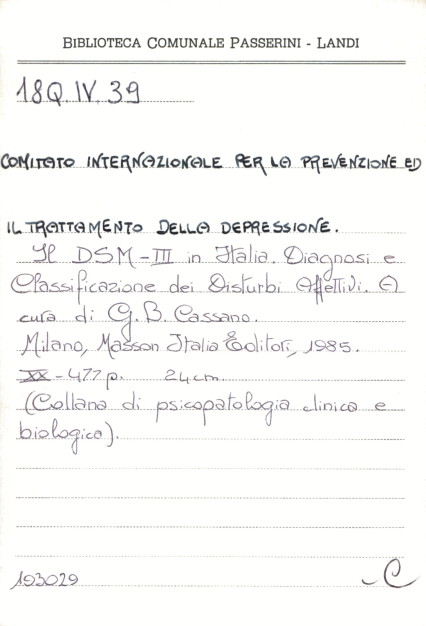 BIBLIOTECA COMUNALE PASSERINI - LANDI
18Q.IV.39
COMITATO INTERNAZIONALE PER LA PREVENZIONE ED
IL TRATTAMENTO DELLA DEPRESSIONE.
Il DSM-III in Italia. Diagnosi e
Classificazione dei Disturbi Affettivi. A
cura di G.B. Cassano.
Milano, Masson Italia Editori, 1985.
XX-477 p. 24 cm.
(Collana di psicopatologia clinica e
biologica).
193029
C